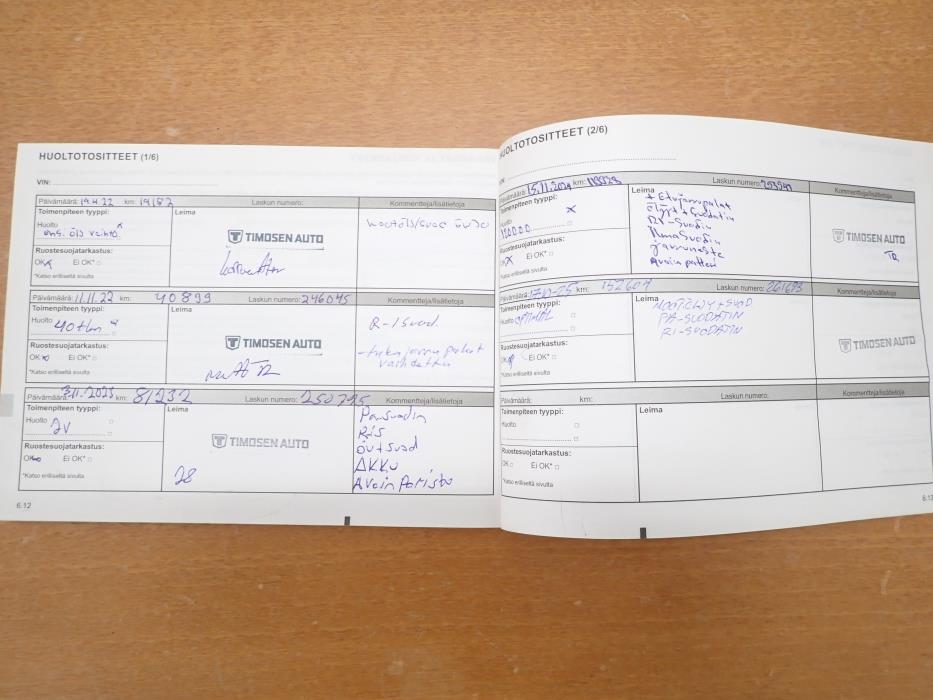 HUOLTOTOSITTEET (1/6)
VIN:
Päivämäärä: 19.4.22 km: 19182 Laskun numero: Kommentteja/lisätietoja
Toimenpiteen tyyppi: Leima
Huolto x
ens. öljy vaihto
TIMOSEN AUTO
Ruostesuojatarkastus:
OK x Ei OK*
*Katso erilliseltä sivulta
Päivämäärä: 11.11.22 km: 40899 Laskun numero: 246045 Kommentteja/lisätietoja
Toimenpiteen tyyppi: Leima
Huolto 40tkm
R-Isuod.
TIMOSEN AUTO
Ruostesuojatarkastus:
- jarru palat
vaihdettu
OK Ei OK*
*Katso erilliseltä sivulta
Päivämäärä: 3.11.2023 km: 81232 Laskun numero: 250795 Kommentteja/lisätietoja
Toimenpiteen tyyppi: Leima
Huolto 2V
TIMOSEN AUTO
Ruostesuojatarkastus:
OK Ei OK*
*Katso erilliseltä sivulta
AKKU
Avain Paristo
6.12
HUOLTOTOSITTEET (2/6)
VIN
Päivämäärä: 15.11.2024 km: Laskun numero: Kommentteja/lisätietoja
Toimenpiteen tyyppi: Leima
Huolto x
120000
+ Etujarrupalat
öljyt + Suodatin
RI-Suodin
IlmaSuodin
jarruneste
Avain patteri
TIMOSEN AUTO
Ruostesuojatarkastus:
OK x Ei OK*
*Katso erilliseltä sivulta
Päivämäärä: 17.10-25 km: 152607 Laskun numero: 261693 Kommentteja/lisätietoja
Toimenpiteen tyyppi: Leima
Huolto
MOOTÖLJY + SUOD
PA-SUODATIN
RI-SUODATIN
TIMOSEN AUTO
Ruostesuojatarkastus:
OK Ei OK*
*Katso erilliseltä sivulta
Päivämäärä: km: Laskun numero: Kommentteja/lisätietoja
Toimenpiteen tyyppi: Leima
Huolto
Ruostesuojatarkastus:
OK Ei OK*
*Katso erilliseltä sivulta
6.13